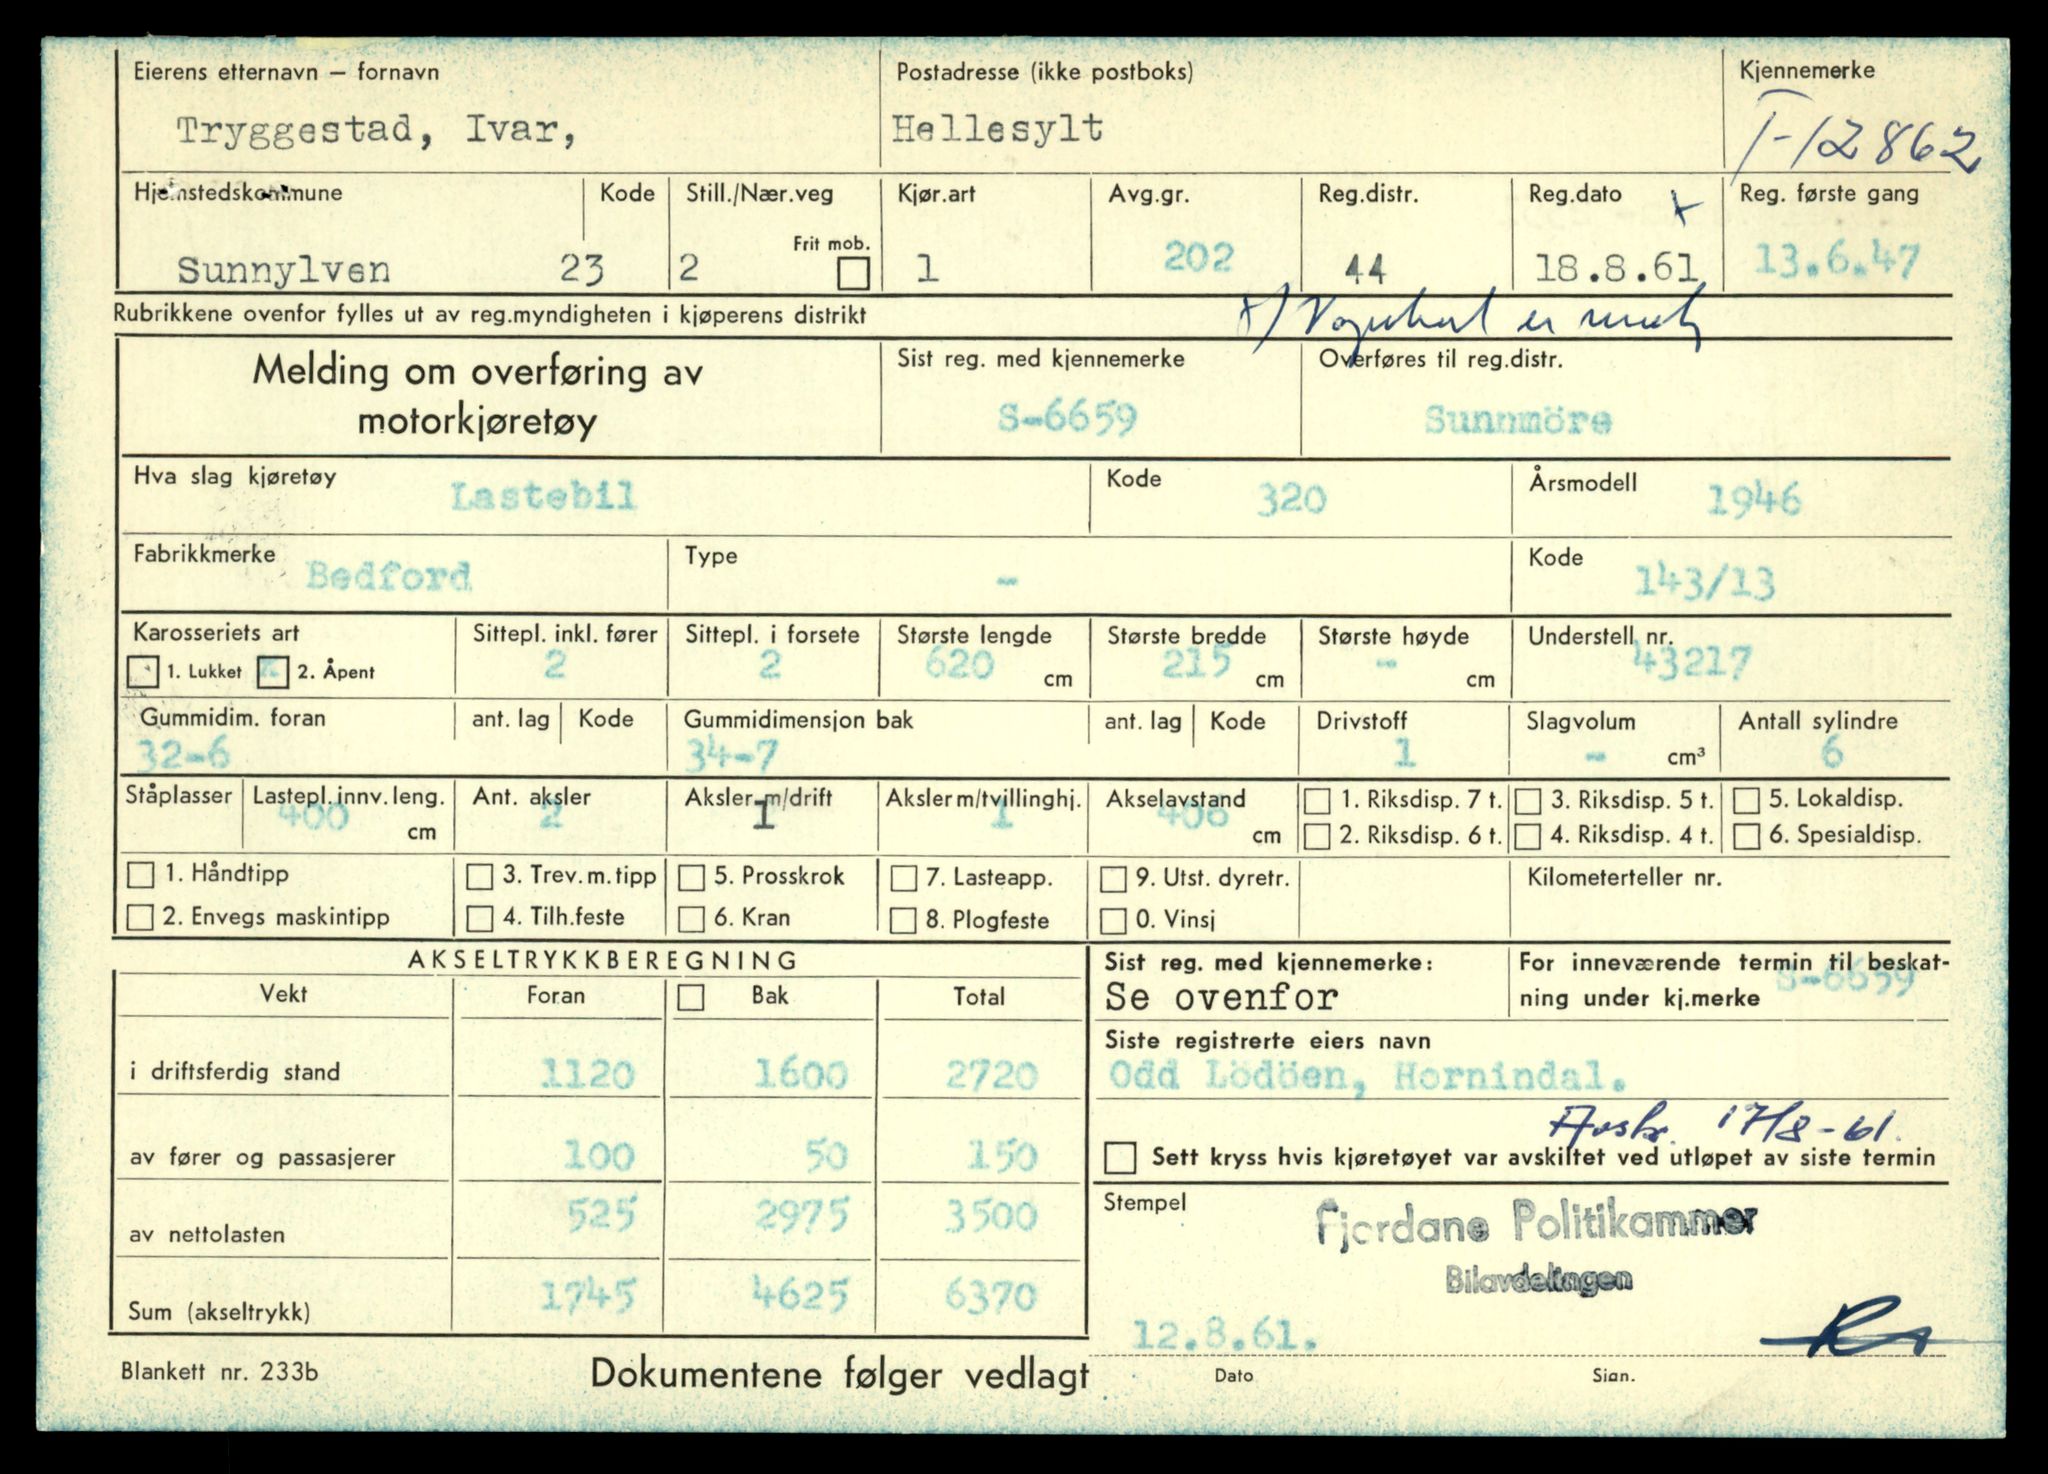 Eierens etternavn – fornavn Postadresse (ikke postboks) Kjennemerke
Tryggestad, Ivar, Hellesylt T-12862
Hjemstedskommune Kode Still./Nær.veg Kjør.art Avg.gr. Reg.distr. Reg.dato x Reg. første gang
Frit mob.
Sunnylven 23 2 1 202 44 18.8.61 13.6.47
Rubrikkene ovenfor fylles ut av reg.myndigheten i kjøperens distrikt x) Vognkort er
Melding om overføring av motorkjøretøy
Sist reg. med kjennemerke Overføres til reg.distr.
S-6659 Sunnmöre
Hva slag kjøretøy Kode Årsmodell
Lastebil 320 1946
Fabrikkmerke Type Kode
Bedford - 143/13
Karosseriets art Sittepl. inkl. fører Sittepl. i forsete Største lengde Største bredde Største høyde Understell nr.
1. Lukket x 2. Åpent 2 2 620 cm 215 cm - cm 43217
Gummidim. foran ant. lag Kode Gummidimensjon bak ant. lag Kode Drivstoff Slagvolum Antall sylindre
32-6 34-7 1 - cm³ 6
Ståplasser Lastepl. innv. leng. Ant. aksler Aksler m/drift Aksler m/tvillinghj. Akselavstand 1. Riksdisp. 7 t. 3. Riksdisp. 5 t. 5. Lokaldisp.
400 cm 2 1 1 406 cm 2. Riksdisp. 6 t. 4. Riksdisp. 4 t. 6. Spesialdisp.
1. Håndtipp 3. Trev.m.tipp 5. Prosskrok 7. Lasteapp. 9. Utst. dyretr. Kilometerteller nr.
2. Envegs maskintipp 4. Tilh.feste 6. Kran 8. Plogfeste 0. Vinsj
AKSELTRYKKBEREGNING
Vekt Foran Bak Total
i driftsferdig stand 1120 1600 2720
av fører og passasjerer 100 50 150
av nettolasten 525 2975 3500
Sum (akseltrykk) 1745 4625 6370
Sist reg. med kjennemerke: For inneværende termin til beskat-
Se ovenfor ning under kj.merke S-6659
Siste registrerte eiers navn
Odd Lödöen, Hornindal.
Avsk. 17/8-61.
Sett kryss hvis kjøretøyet var avskiltet ved utløpet av siste termin
Stempel
Fjordane Politikammer
Bilavdelingen
12.8.61.
Dato Sign.
Blankett nr. 233b Dokumentene følger vedlagt